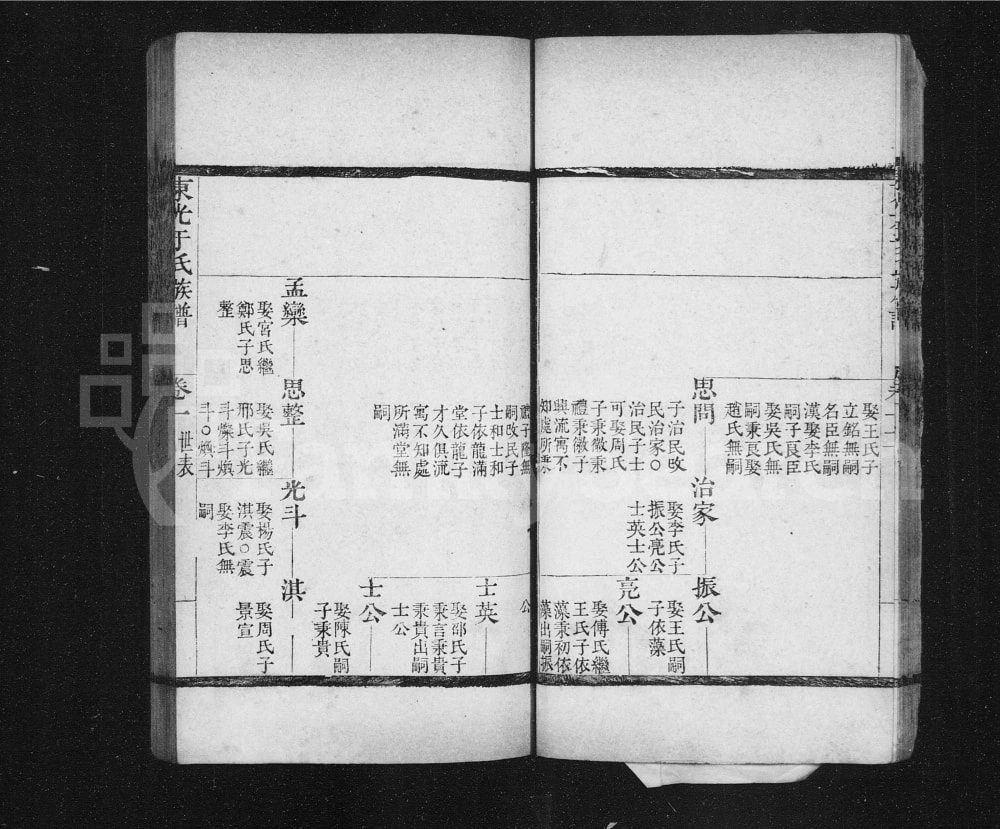 娶王氏子
立銘無嗣
名臣無嗣
漢娶李氏
嗣子良臣
娶吳氏無
嗣秉良娶
趙氏無嗣
思問
子治民改
民治家○
治民子士
可娶周氏
子秉徽秉
禮秉徽子
興流寓不
知處所秉
禮子隆無
嗣改民子
士和士和
子依龍滿
堂依龍子
才久俱流
寓不知處
所滿堂無
嗣
治家
娶李氏子
振公亮公
士英士公
振公
娶王氏嗣
子依藻
亮公
娶傅氏繼
王氏子依
藻秉初依
藻出嗣振
公
士英
娶邵氏子
秉言秉貴
秉貴出嗣
士公
士公
娶陳氏嗣
子秉貴
孟欒
娶宮氏繼
鄭氏子思
整
思整
娶吳氏繼
邢氏子光
斗燦斗煥
斗○煥斗
光斗
娶楊氏子
淇震○震
娶李氏無
嗣
淇
娶周氏子
景宣
東光于氏族譜
卷一
世表